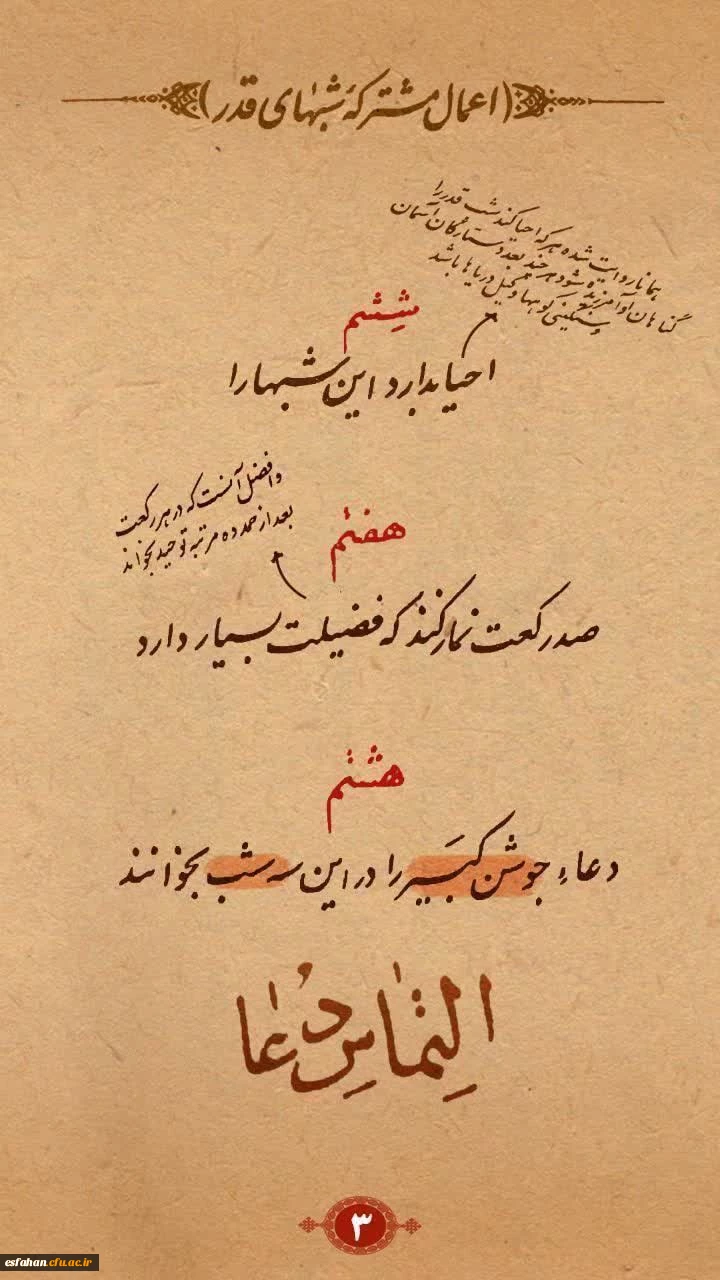 (اعمال مشترکهٔ شبهای قدر)
همانا روایت شده هر که احیا کند شب قدر را
گناهان او آمرزیده شود هر چند بعدد ستارگان آسمان
و سنگینی کوهها و کیل دریاها باشد
ششم
احیا بدارد این شبها را
و افضل آنست که در هر رکعت
بعد از حمد ده مرتبه توحید بخواند
هفتم
صد رکعت نماز کند که فضیلت بسیار دارد
هشتم
دعاءِ جوشن کَبیر را در این سه شب بخوانند
اِلتِماسِ دُعا
۳
esfahan.cfu.ac.ir